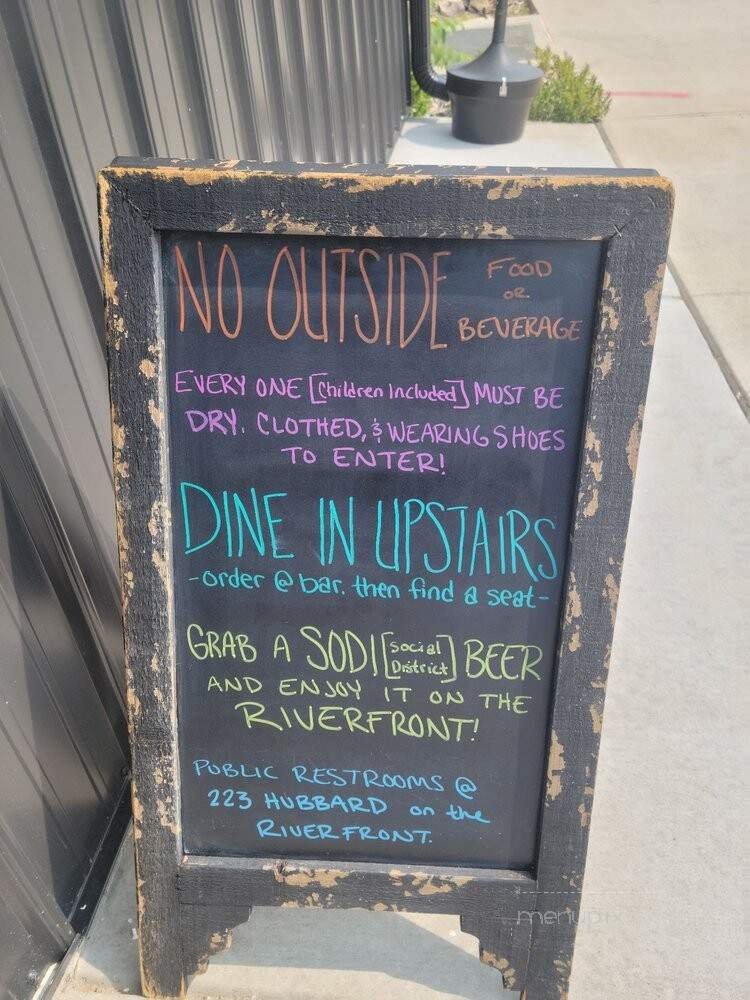 NO OUTSIDE FOOD OR BEVERAGE
EVERY ONE [Children Included] MUST BE
DRY. CLOTHED, & WEARING SHOES
TO ENTER!
DINE IN UPSTAIRS
-order @ bar. then find a seat-
GRAB A SODI [Social District] BEER
AND ENJOY IT ON THE
RIVERFRONT!
PUBLIC RESTROOMS @
223 HUBBARD on the
RIVERFRONT.
menupix